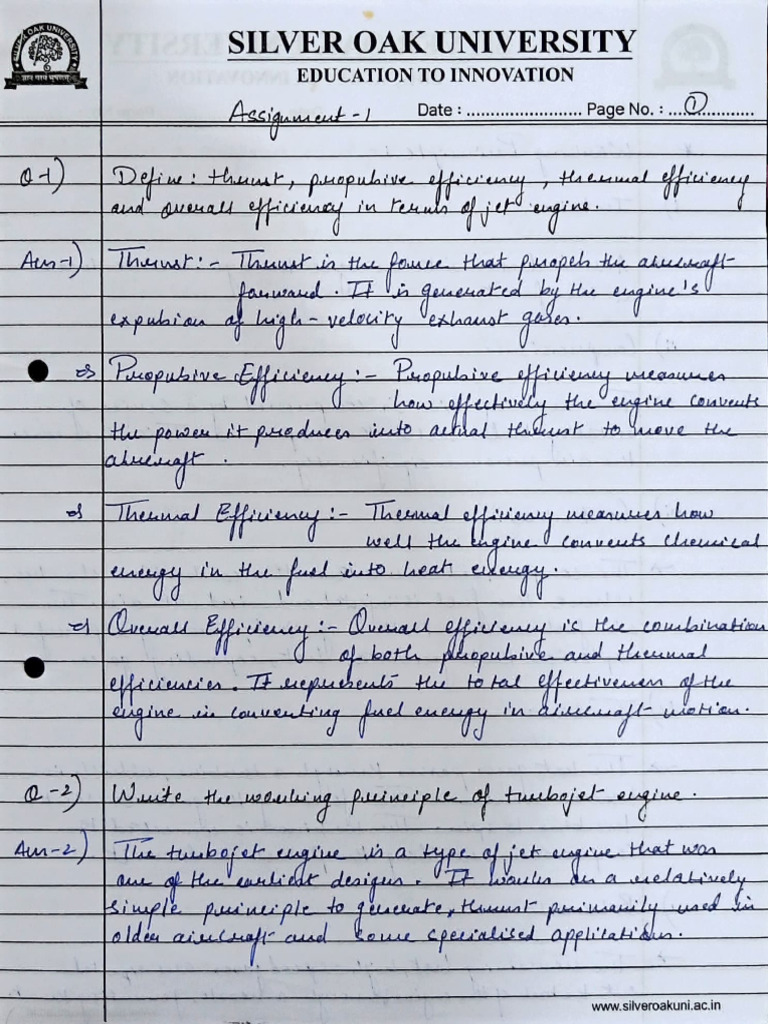 SILVER OAK UNIVERSITY
EDUCATION TO INNOVATION
Assignment-1 Date : ........................ Page No. : ....①............
Q-1) Define: thrust, propulsive efficiency, thermal efficiency
and overall efficiency in terms of jet engine.
Ans-1) Thrust:- Thrust is the force that propels the aircraft
forward. It is generated by the engine's
expulsion of high-velocity exhaust gases.
⇒ Propulsive Efficiency:- Propulsive efficiency measures
how effectively the engine converts
the power it produces into actual thrust to move the
aircraft.
⇒ Thermal Efficiency:- Thermal efficiency measures how
well the engine converts chemical
energy in the fuel into heat energy.
⇒ Overall Efficiency:- Overall efficiency is the combination
of both propulsive and thermal
efficiencies. It represents the total effectiveness of the
engine in converting fuel energy in aircraft motion.
Q-2) Write the working principle of turbojet engine.
Ans-2) The turbojet engine is a type of jet engine that was
one of the earliest designs. It works on a relatively
simple principle to generate, thrust primarily used in
older aircraft and some specialised applications.
www.silveroakuni.ac.in